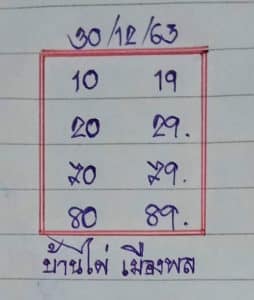 30/12/63
10 19
20 29.
70 79.
80 89.
บ้านไผ่ เมืองพล